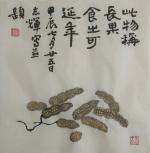 此物稱
長果
食出可
延年
甲辰七月廿五日
志輝寫並
題